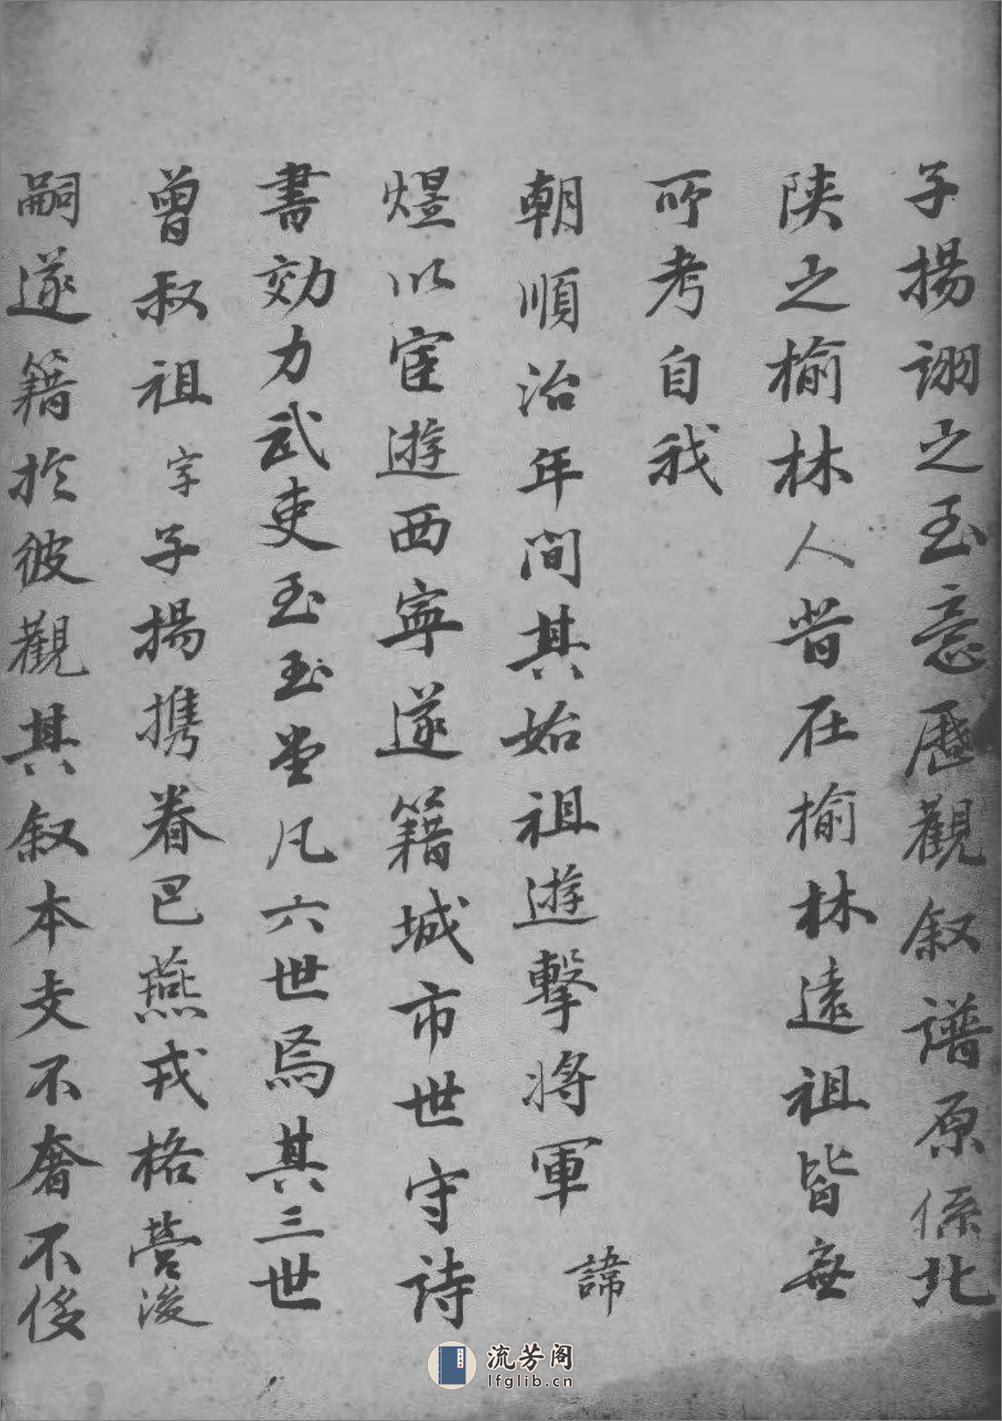 子揚詡之玉意歷觀叙譜原係北
陕之榆林人昔在榆林遠祖皆無
所考自我
朝順治年間其始祖遊擊將軍諱
煜以宦遊西寧遂籍城市世守詩
書効力武吏玉玉堂凡六世焉其三世
曾叔祖字子揚携眷巴燕戎格營後
嗣遂籍於彼觀其叙本支不奢不侈
流芳阁
lfglib.cn